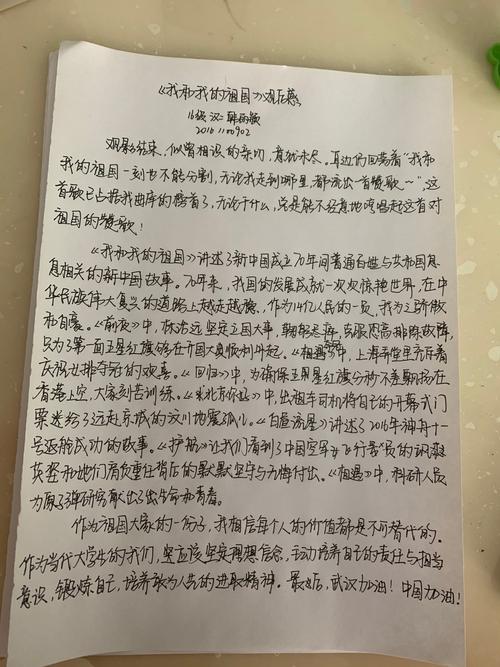 《我和我的祖国》观后感
16级 汉二
20161100902
观影结束，似曾相识的亲切，意犹未尽。耳边仍回荡着“我和
我的祖国一刻也不能分割，无论我走到哪里，都流出一首赞歌～”，这
首歌已占据我曲库的榜首了，无论干什么，总是能不经意地哼唱起这首对
祖国的赞歌！
《我和我的祖国》讲述了新中国成立70年间普通百姓与共和国息
息相关的新中国故事。70年来，我国的发展成就一次次惊艳世界，在中
华民族伟大复兴的道路上越走越稳，作为14亿人民的一员，我为之骄傲
和自豪。《前夜》中，林治远坚定立国大事，克服恐高排除故障，
只为了第一面五星红旗能够在开国大典顺利升起。《相遇》中，上海弄堂里齐齐着
庆祝女排夺冠的欢喜。《回归》中，为确保五星红旗分秒不差飘扬在
香港上空，大家刻苦训练。《北京你好》中，出租车司机将自己的开幕式门
票送给了远赴京城的汶川地震孤儿。《白昼流星》讲述了2016年神舟十一
号返航成功的故事。《护航》让我们看到了中国空军女飞行员的飒爽
英姿和她们肩负重任背后的默默坚守与无悔付出。《相遇》中，科研人员
为原子弹研究献出了生命和青春。
作为祖国大家的一份子，我相信每个人的价值都是不可替代的。
作为当代大学生的我们，更应该坚定理想信念，主动培养自己的责任与担当
意识，锻炼自己，培养敢为人先的进取精神。最后，武汉加油！中国加油！